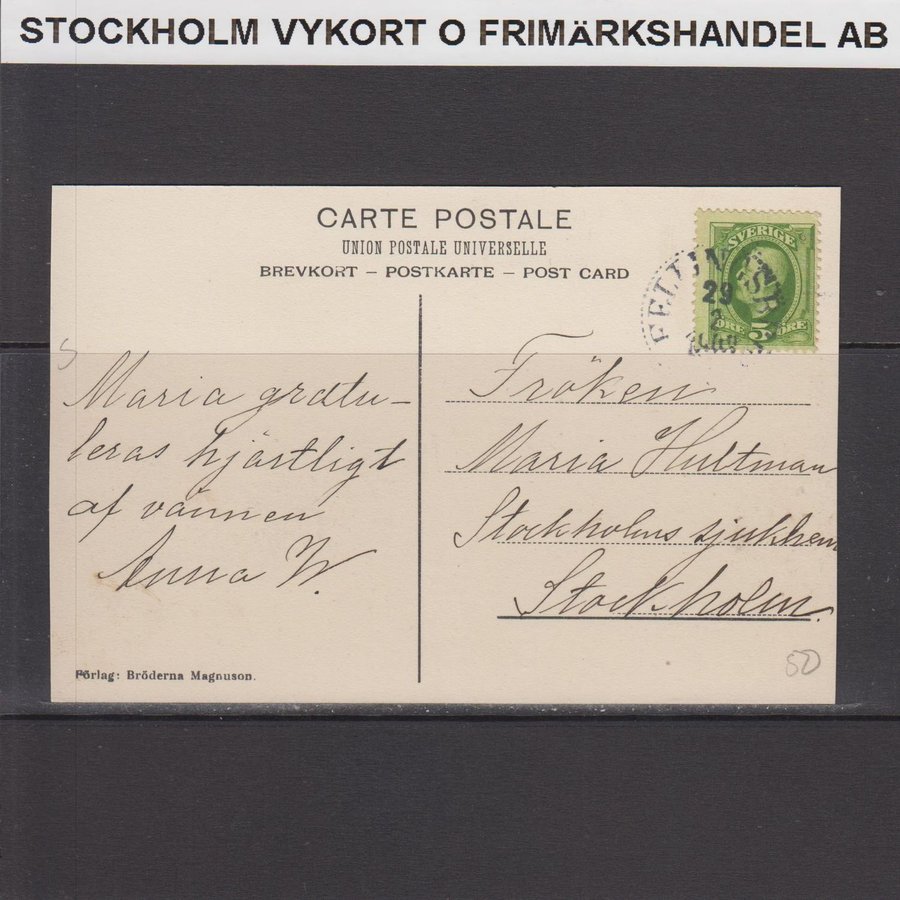 STOCKHOLM VYKORT O FRIMÄRKSHANDEL AB
CARTE POSTALE
UNION POSTALE UNIVERSELLE
BREVKORT – POSTKARTE – POST CARD
SVERIGE
ÖRE 5 ÖRE
29
Maria gratu–
leras hjärtligt
af vännen
Anna W.
Fröken
Maria Hultman
Stockholms sjukhem
Stockholm.
Förlag: Bröderna Magnuson.
50